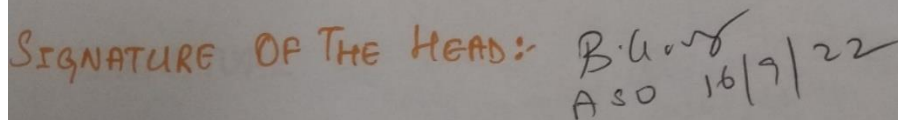 SIGNATURE OF THE HEAD:-
ASO 16/9/22